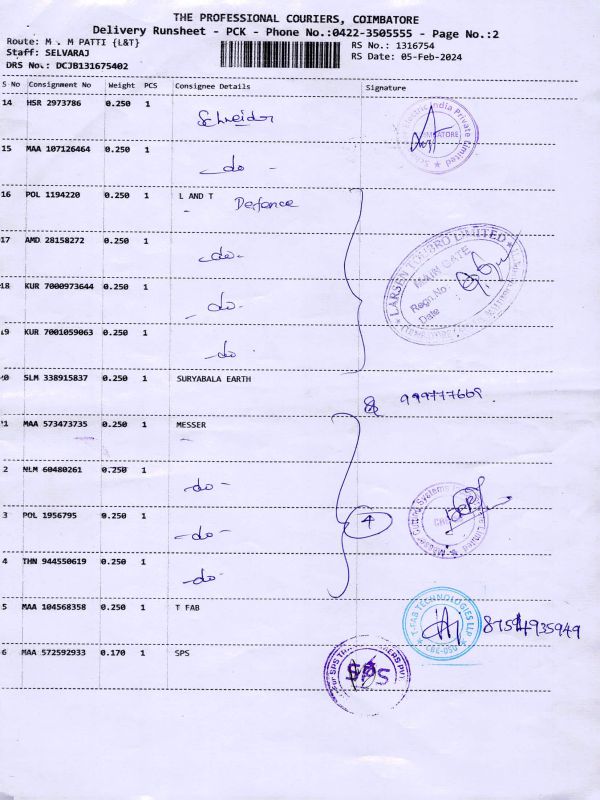 THE PROFESSIONAL COURIERS, COIMBATORE
Delivery Runsheet - PCK - Phone No.:0422-3505555 - Page No.:2
Route: M . M PATTI {L&T}
RS No.: 1316754
Staff: SELVARAJ
RS Date: 05-Feb-2024
DRS No.: DCJB131675402
S No Consignment No Weight PCS Consignee Details Signature
14 HSR 2973786 0.250 1 Schneider
COIMBATORE
India Private Limited
15 MAA 107126464 0.250 1 -do-
16 POL 1194220 0.250 1 L AND T Defence
17 AMD 28158272 0.250 1 -do-
LARSEN & TOUBRO LIMITED
MAIN GATE
Regn.No
Date
18 KUR 7000973644 0.250 1 -do-
19 KUR 7001059063 0.250 1 -do-
20 SLM 338915837 0.250 1 SURYABALA EARTH
999777669.
21 MAA 573473735 0.250 1 MESSER
2 NLM 60480261 0.250 1 -do-
Messer Cutting Systems
3 POL 1956795 0.250 1 -do- 4
4 THN 944550619 0.250 1 -do-
5 MAA 104568358 0.250 1 T FAB
T-FAB TECHNOLOGIES LLP
CBE-050
6 MAA 572592933 0.170 1 SPS
For SPS
SPS